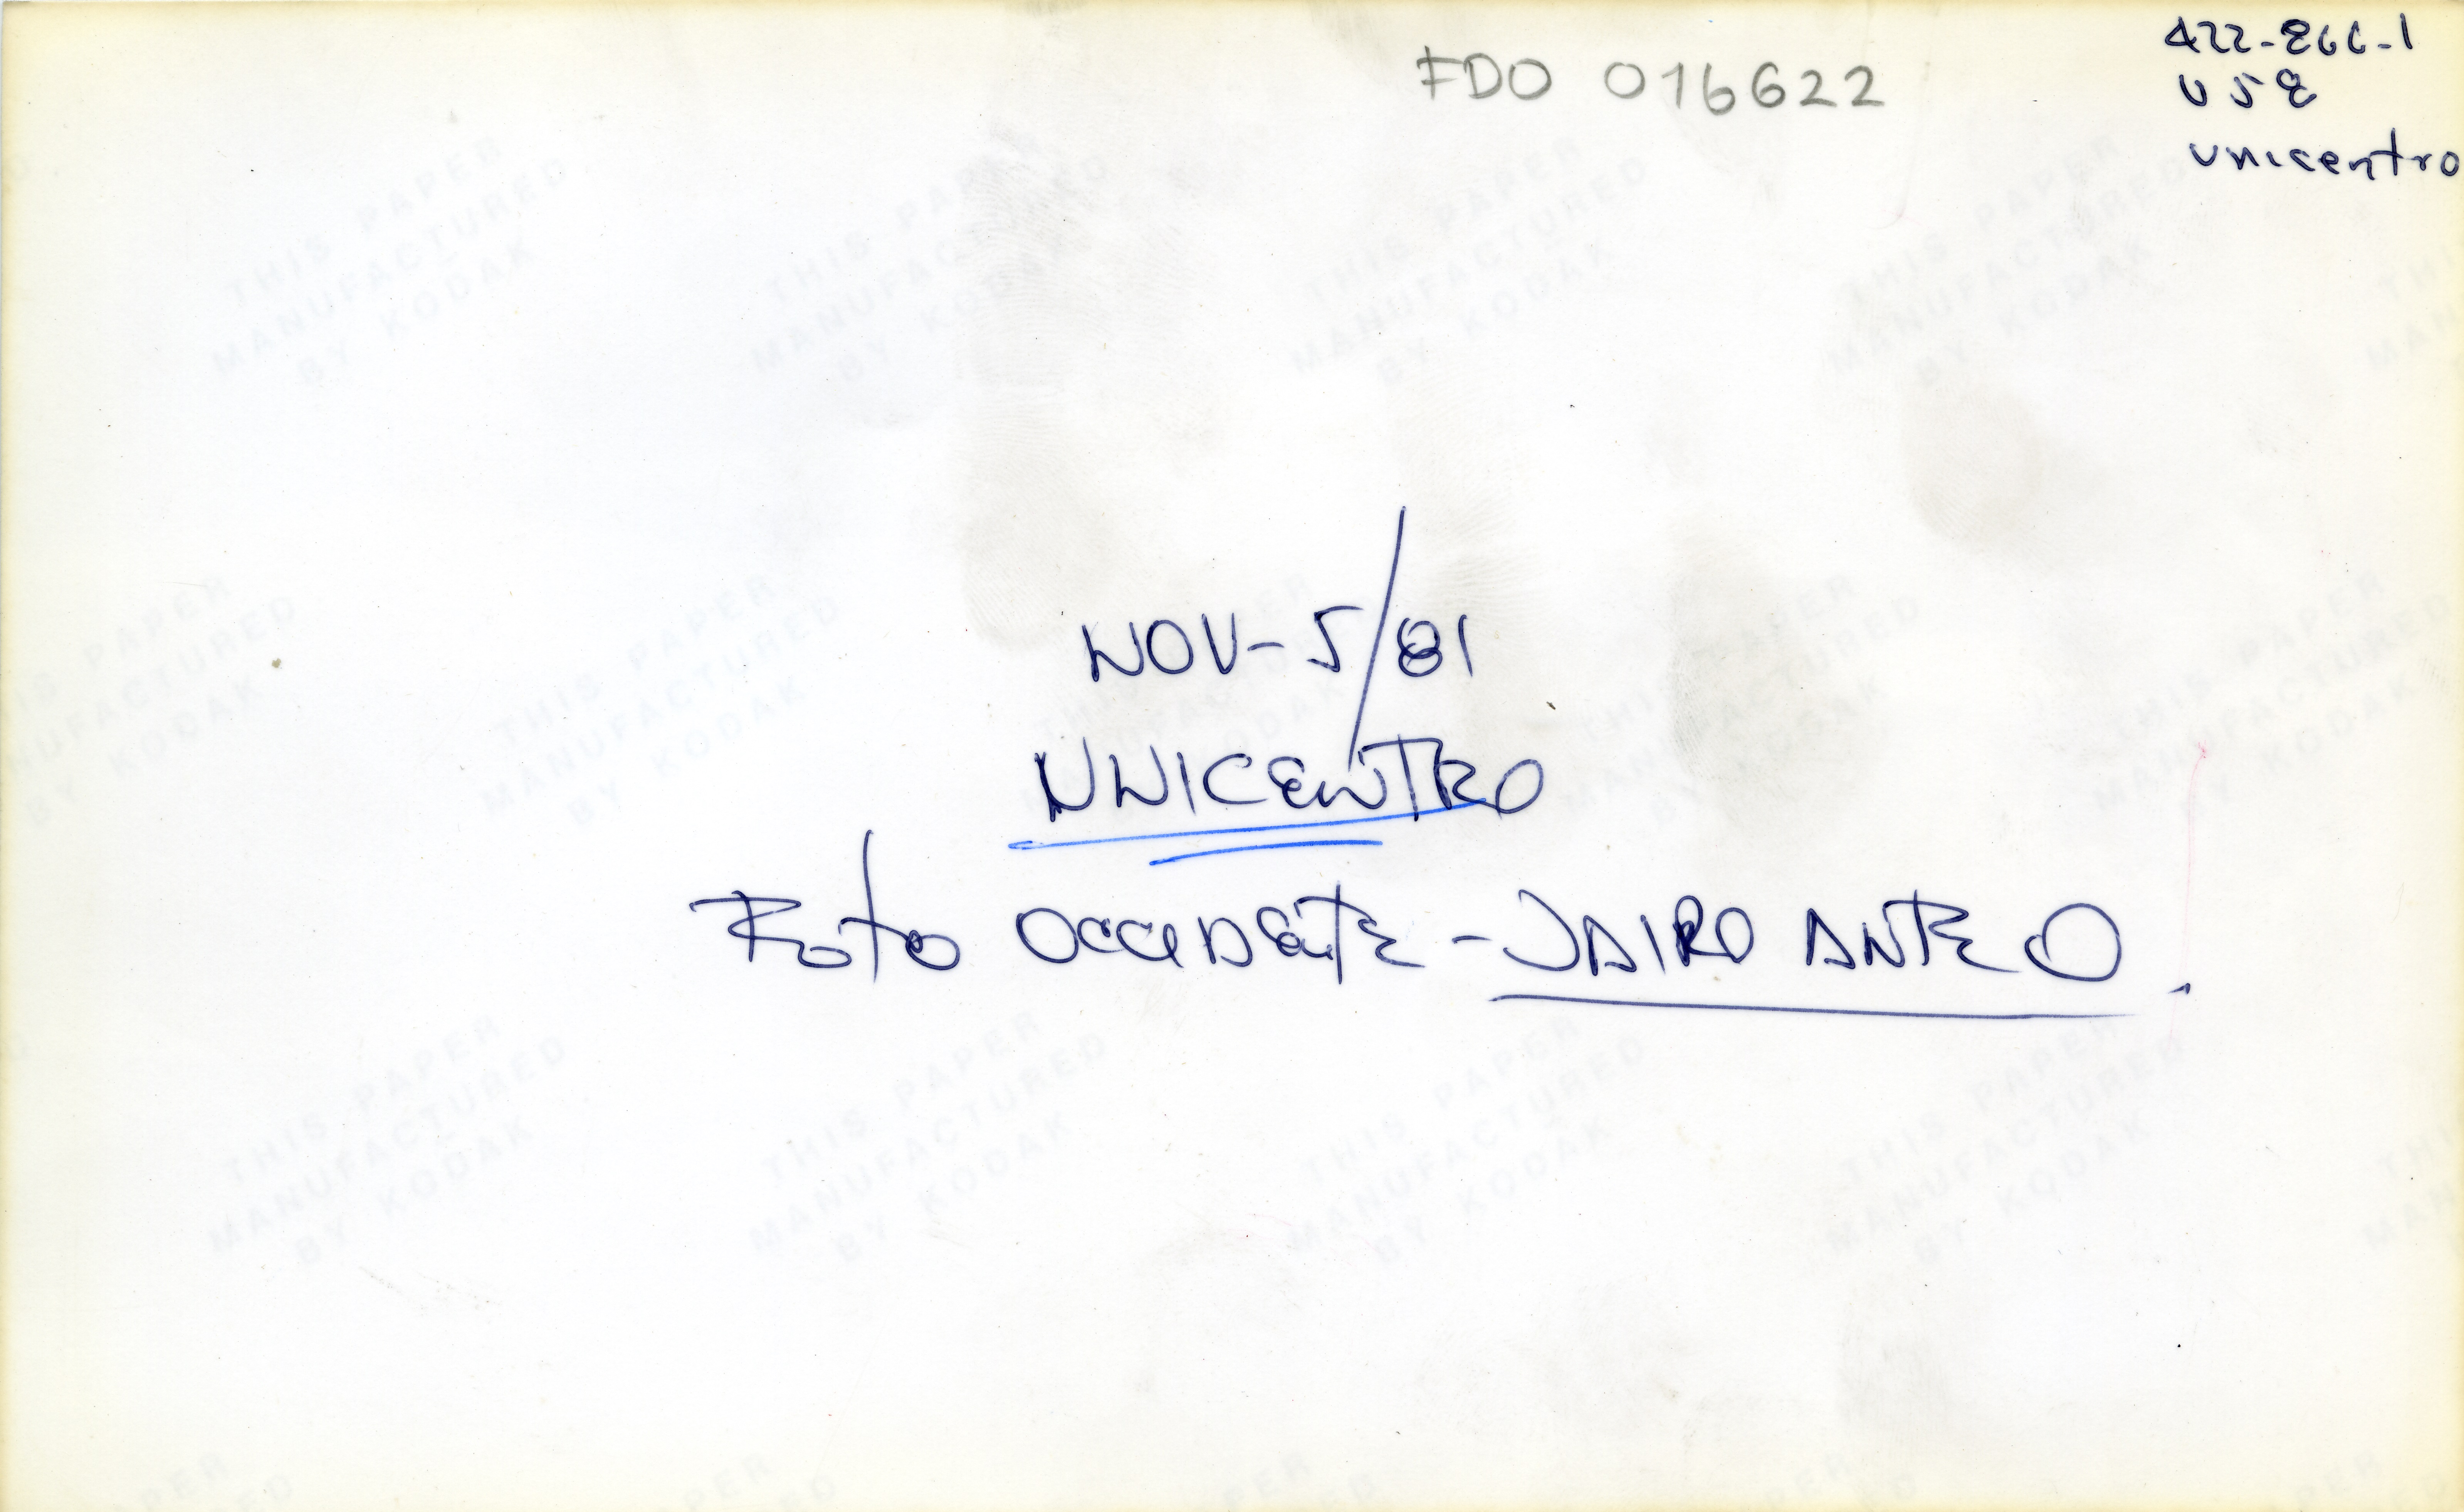 FDO 016622
422-866-1
U58
unicentro
NOV-5/81
UNICENTRO
Foto OCCIDENTE - JAIRO ANTE O.
THIS PAPER
MANUFACTURED
BY KODAK